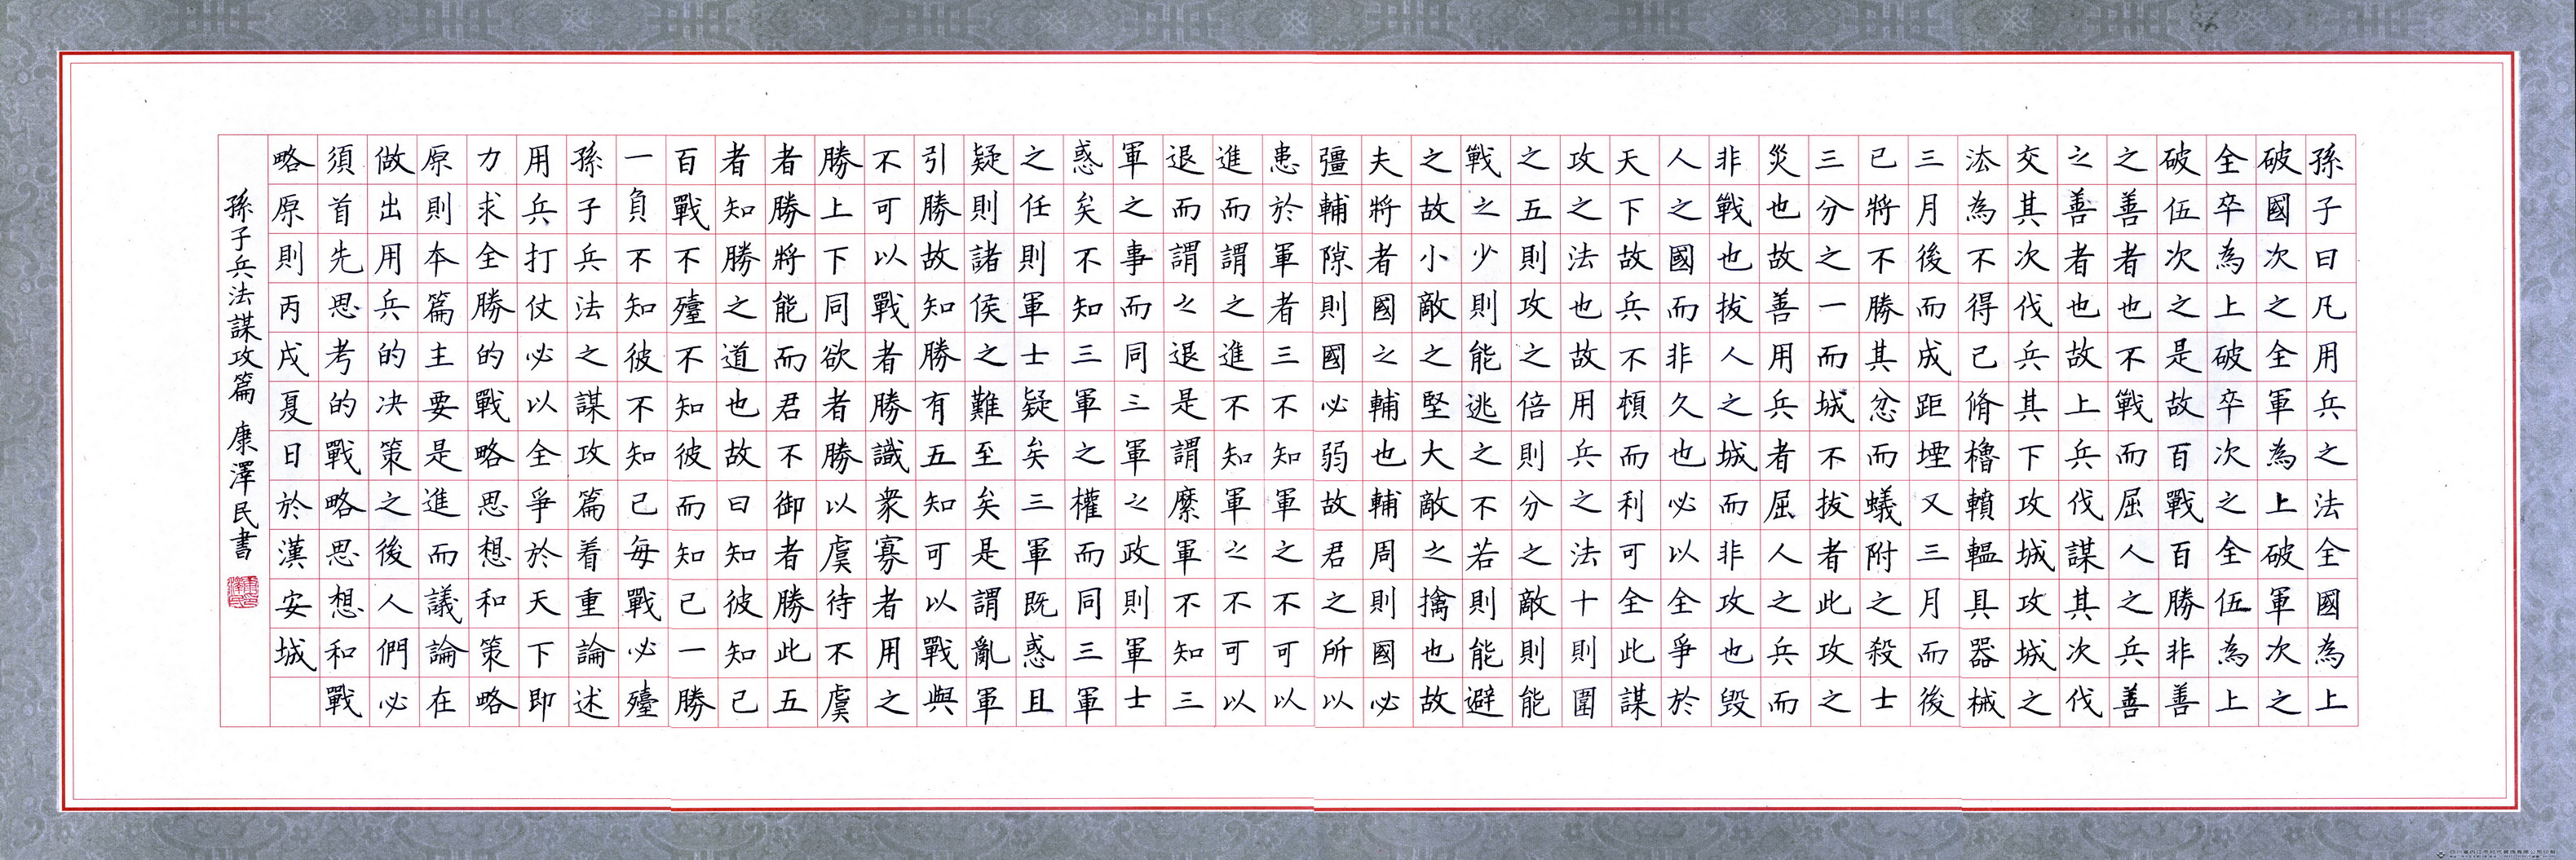 孫子曰凡用兵之法全國為上
破國次之全軍為上破軍次之
全卒為上破卒次之全伍為上
破伍次之是故百戰百勝非善
之善者也不戰而屈人之兵善
之善者也故上兵伐謀其次伐
交其次伐兵其下攻城攻城之
法為不得已脩櫓轒輼具器械
三月後而成距堙又三月而後
已將不勝其忿而蟻附之殺士
三分之一而城不拔者此攻之
災也故善用兵者屈人之兵而
非戰也拔人之城而非攻也毀
人之國而非久也必以全爭於
天下故兵不頓而利可全此謀
攻之法也故用兵之法十則圍
之五則攻之倍則分之敵則能
戰之少則能逃之不若則能避
之故小敵之堅大敵之擒也故
夫將者國之輔也輔周則國必
彊輔隙則國必弱故君之所以
患於軍者三不知軍之不可以
進而謂之進不知軍之不可以
退而謂之退是謂縻軍不知三
軍之事而同三軍之政則軍士
惑矣不知三軍之權而同三軍
之任則軍士疑矣三軍既惑且
疑則諸侯之難至矣是謂亂軍
引勝故知勝有五知可以戰與
不可以戰者勝識衆寡者用之
勝上下同欲者勝以虞待不虞
者勝將能而君不御者勝此五
者知勝之道也故曰知彼知己
百戰不殪不知彼而知己一勝
一負不知彼不知己每戰必殪
孫子兵法之謀攻篇着重論述
用兵打仗必以全爭於天下即
力求全勝的戰略思想和策略
原則本篇主要是進而議論在
做出用兵的决策之後人們必
須首先思考的戰略思想和戰
略原則丙戌夏日於漢安城
孫子兵法謀攻篇 康澤民書